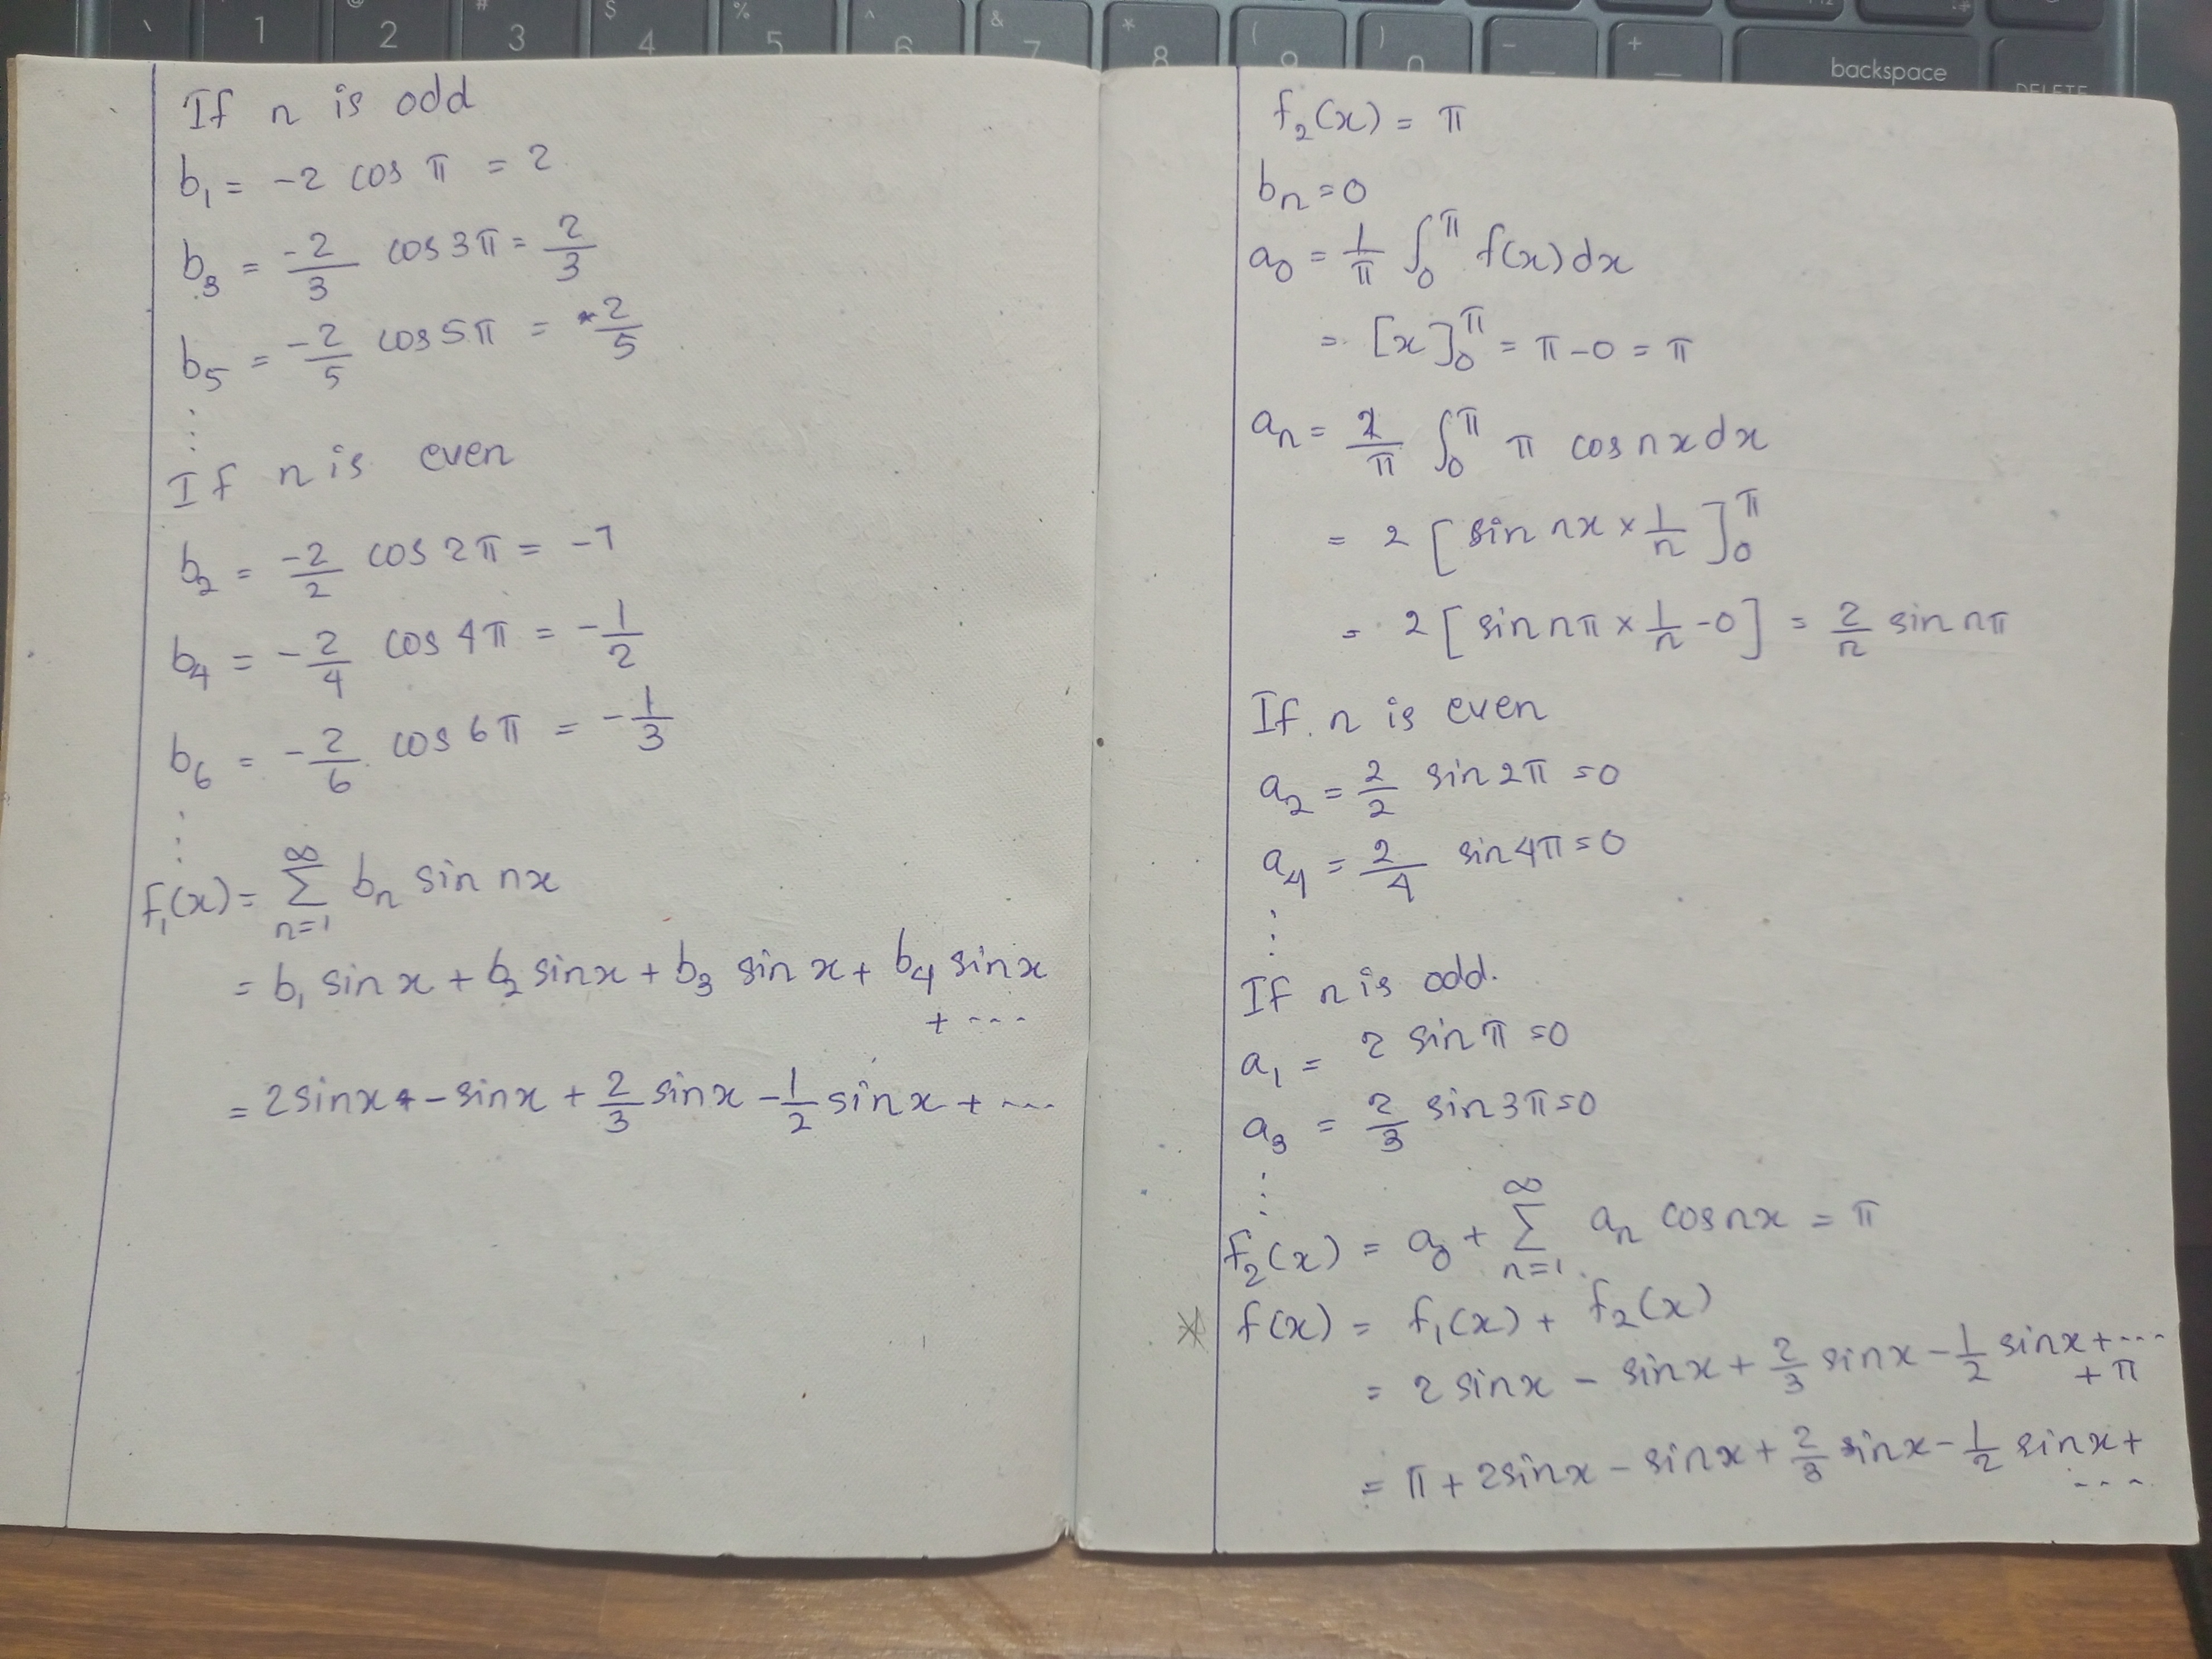 ` 1 2 # 3 $ 4 % 5 ^ 6 & 7 * 8 ( 9 ) 0 - + backspace DELETE
If n is odd
b₁ = -2 cos π = 2
b₃ = -2/3 cos 3π = 2/3
b₅ = -2/5 cos 5π = 2/5
⋮
If n is even
b₂ = -2/2 cos 2π = -1
b₄ = -2/4 cos 4π = -1/2
b₆ = -2/6 cos 6π = -1/3
⋮
f₁(x) = ∑_{n=1}^{∞} bₙ sin nx
= b₁ sin x + b₂ sin x + b₃ sin x + b₄ sin x
+ ---
= 2 sin x + - sin x + 2/3 sin x - 1/2 sin x + ---
f₂(x) = π
bₙ = 0
a₀ = 1/π ∫₀^π f(x) dx
= [x]₀^π = π - 0 = π
aₙ = 2/π ∫₀^π π cos nx dx
= 2 [sin nx × 1/n]₀^π
= 2 [sin nπ × 1/n - 0] = 2/n sin nπ
If n is even
a₂ = 2/2 sin 2π = 0
a₄ = 2/4 sin 4π = 0
⋮
If n is odd.
a₁ = 2 sin π = 0
a₃ = 2/3 sin 3π = 0
⋮
f₂(x) = a₀ + ∑_{n=1}^{∞} aₙ cos nx = π
* f(x) = f₁(x) + f₂(x)
= 2 sin x - sin x + 2/3 sin x - 1/2 sin x + ---
+ π
= π + 2 sin x - sin x + 2/3 sin x - 1/2 sin x +
---